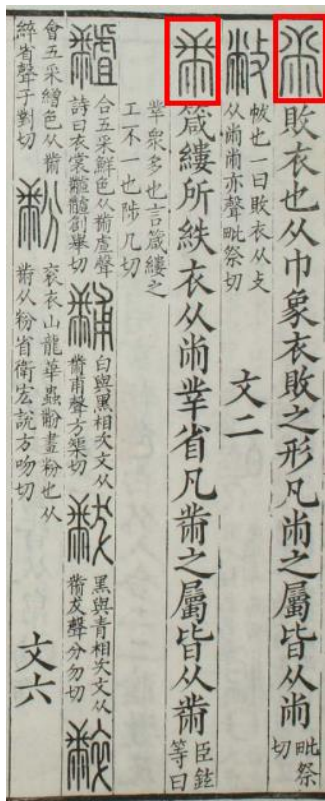 㡀敗衣也从巾象衣敗之形凡㡀之屬皆从㡀
毗祭
切
敝
帗也一曰敗衣从攴
从㡀㡀亦聲毗祭切
文二
黹箴縷所紩衣从㡀丵省凡黹之屬皆从黹
臣鉉
等曰
丵衆多也言箴縷之
工不一也陟几切
𪓐
合五采鮮色从黹虘聲
詩曰衣裳𪓐𪓐創舉切
黼
白與黑相次文从
黹甫聲方榘切
黻
黑與青相次文从
黹犮聲分勿切
𪓌
會五采繒色从黹
綷省聲子對切
黺
衮衣山龍華蟲黺畫粉也从
黹从粉省衛宏說方吻切
文六